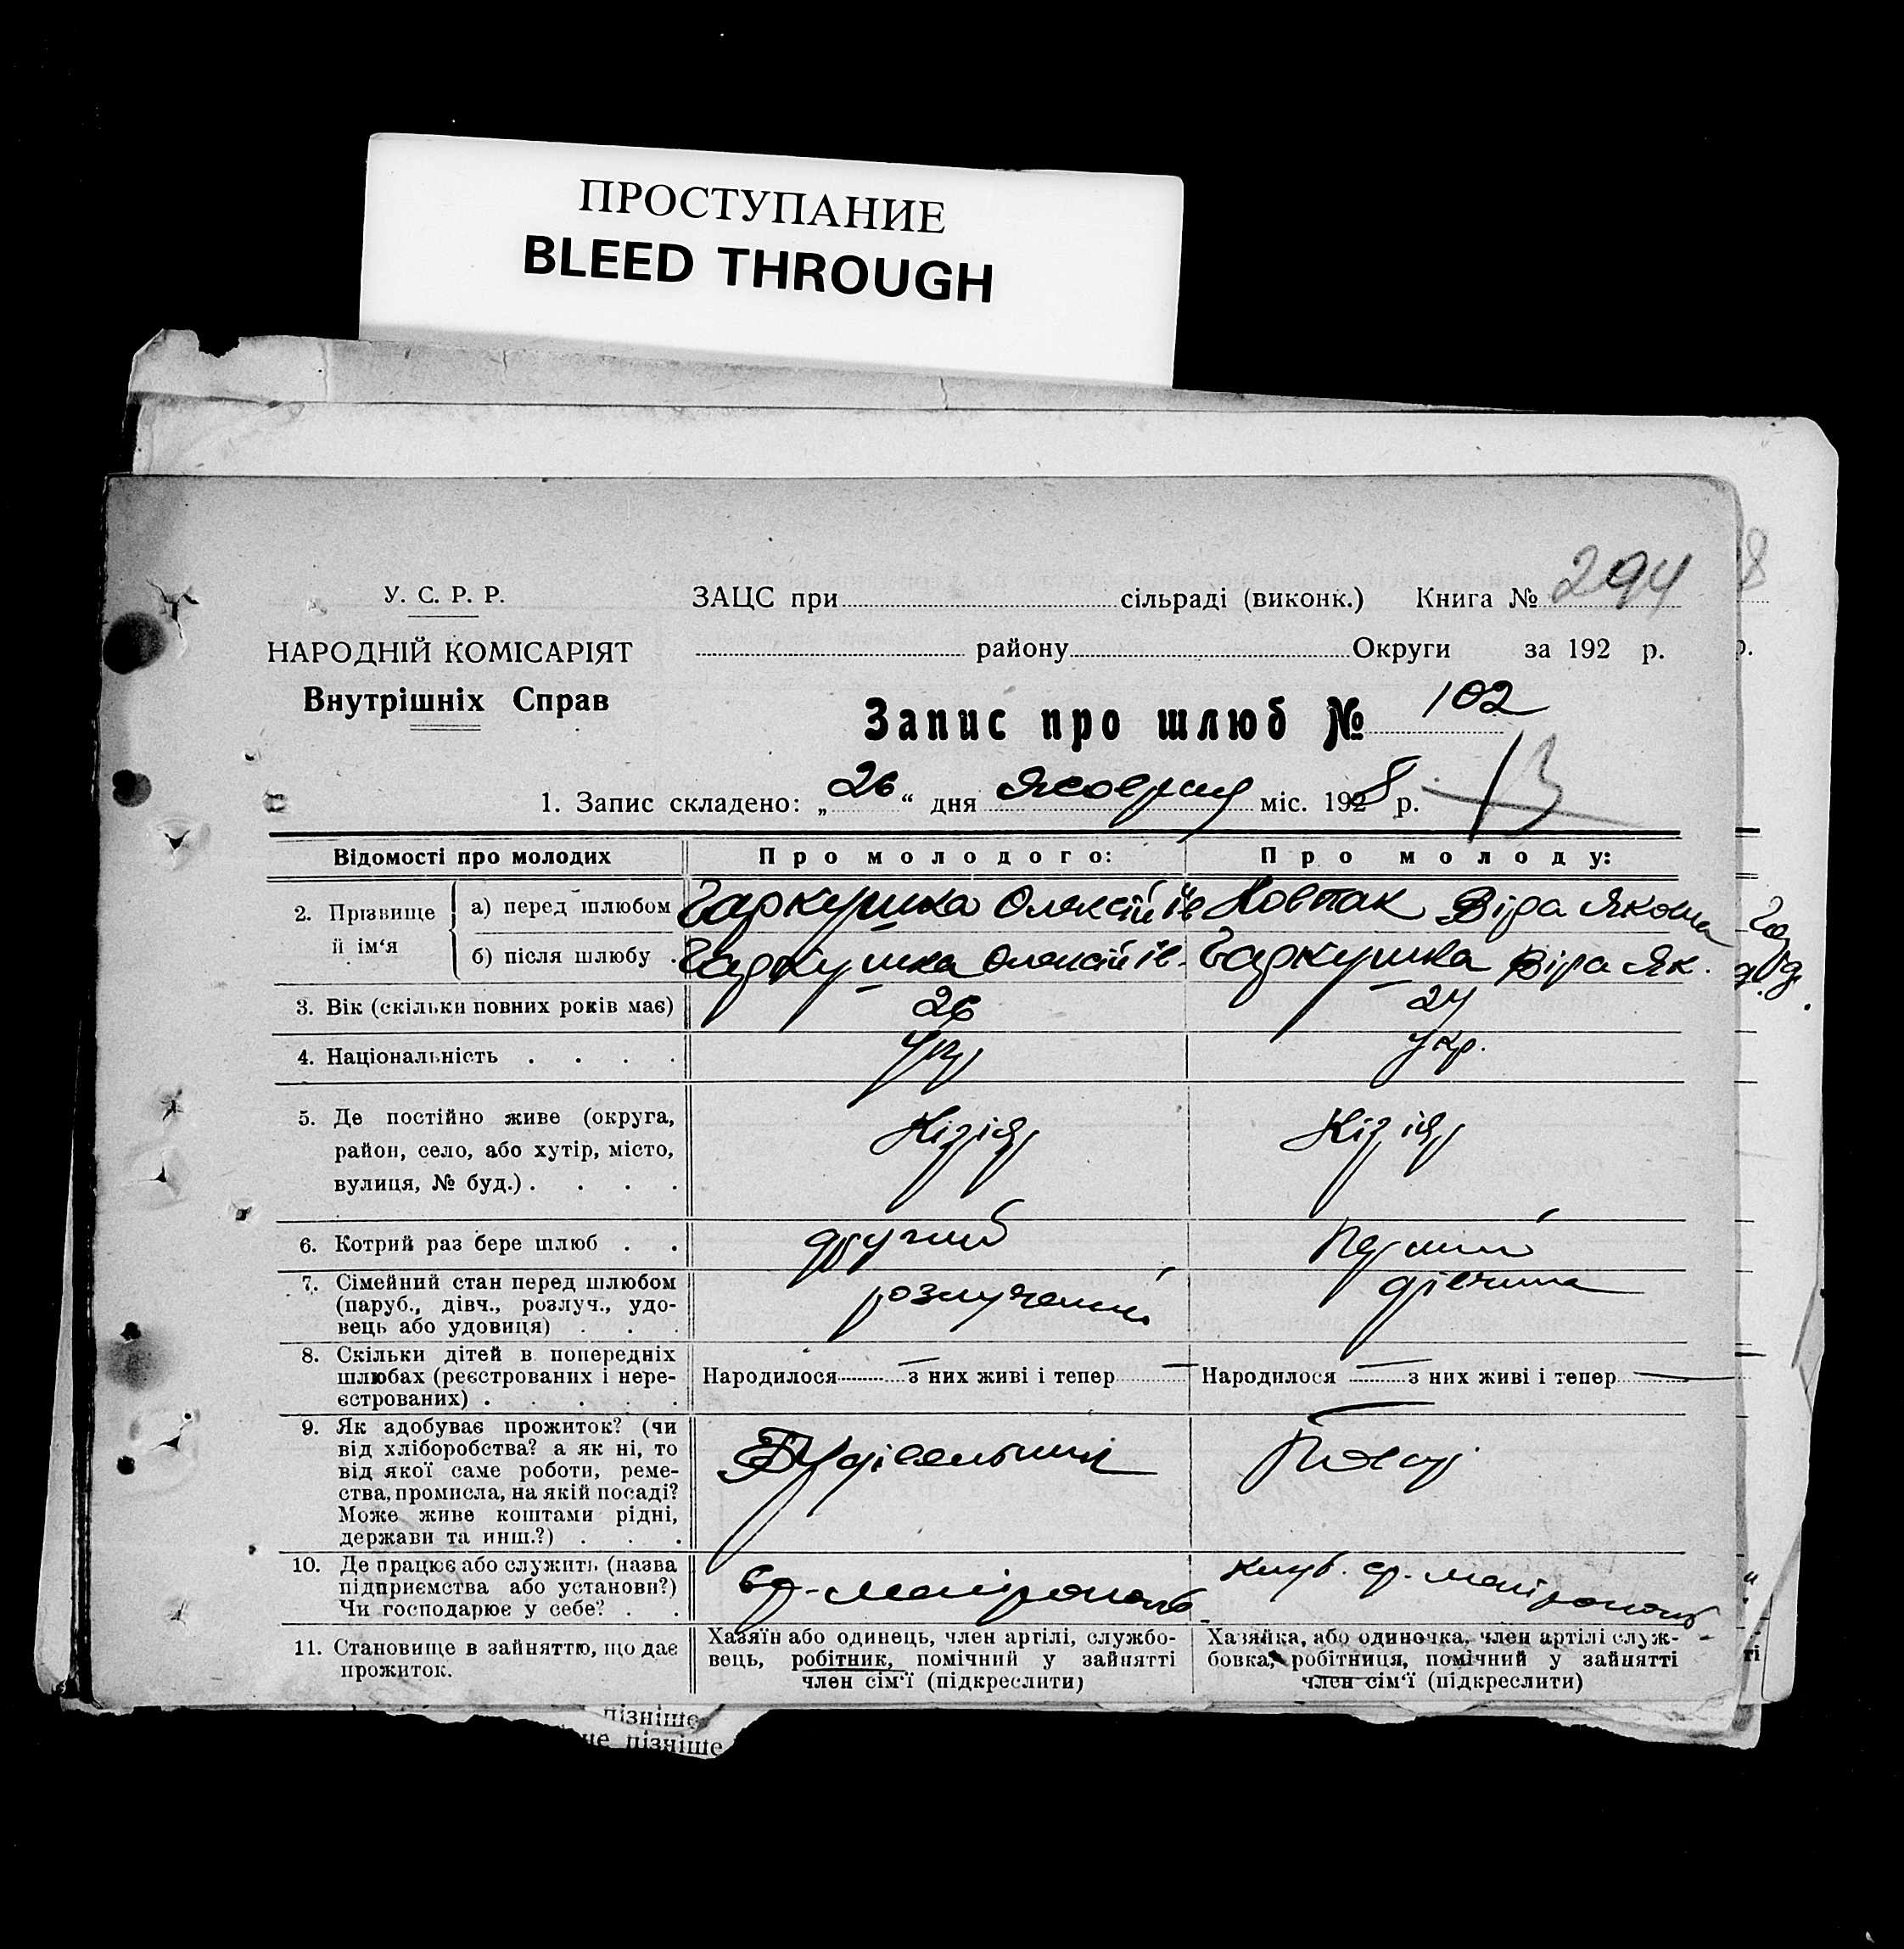 ПРОСТУПАНИЕ
BLEED THROUGH
294
У. С. Р. Р.
НАРОДНІЙ КОМІСАРІЯТ
Внутрішніх Справ
ЗАЦС при сільраді (виконк.) Книга №
району Округи за 192 р.
Запис про шлюб № 102
13
1. Запис складено: „26“ дня Жовтня міс. 1928 р.
Відомості про молодих Про молодого: Про молоду:
2. Прізвище й ім‘я
а) перед шлюбом Гаркушка Олексій Ів Ковпак Віра Яковна
б) після шлюбу Гаркушка Олексій Ів. Гаркушка Віра Як.
3. Вік (скільки повних років має) 26 24
4. Національність . . . . Укр Укр.
5. Де постійно живе (округа,
район, село, або хутір, місто,
вулиця, № буд.) . . . .
Кізія Кізія
6. Котрий раз бере шлюб . . другий Перший
7. Сімейний стан перед шлюбом
(паруб., дівч., розлуч., удо-
вець або удовиця) . . .
розлучений дівчина
8. Скільки дітей в попередніх
шлюбах (реєстрованих і нере-
єстрованих) . . . . .
Народилося — з них живі і тепер — Народилося — з них живі і тепер —
9. Як здобуває прожиток? (чи
від хліборобства? а як ні, то
від якої саме роботи, реме-
ства, промисла, на якій посаді?
Може живе коштами рідні,
держави та инш.?) . . .
Будівельник
10. Де працює або служить (назва
підприємства або установи?)
Чи господарює у себе? . .
11. Становище в зайняттю, що дає
прожиток.
Хазяїн або одинець, член аргілі, службо-
вець, робітник, помічний у зайнятті
член сім‘ї (підкреслити)
Хазяйка, або одиночка, член артілі служ-
бовка, робітниця, помічний у зайнятті
член сім‘ї (підкреслити)
пізніше
не пізніше